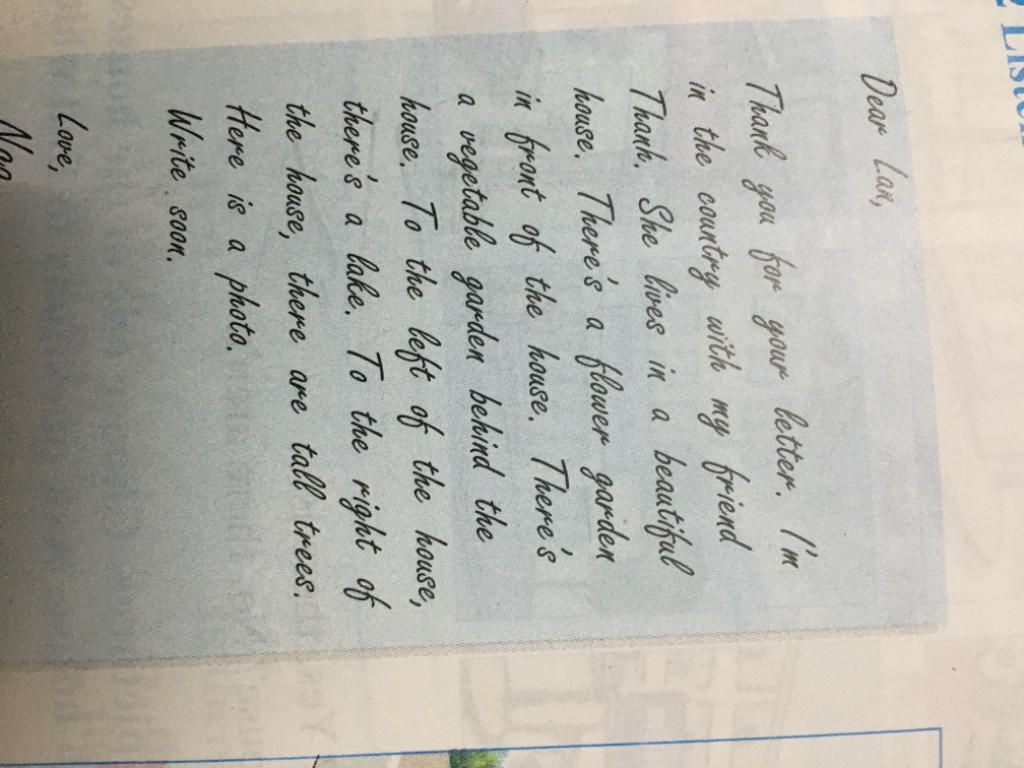 Dear Lan,
Thank you for your letter. I'm
in the country with my friend
Thanh. She lives in a beautiful
house. There's a flower garden
in front of the house. There's
a vegetable garden behind the
house. To the left of the house,
there's a lake. To the right of
the house, there are tall trees.
Here is a photo.
Write soon.
Love,